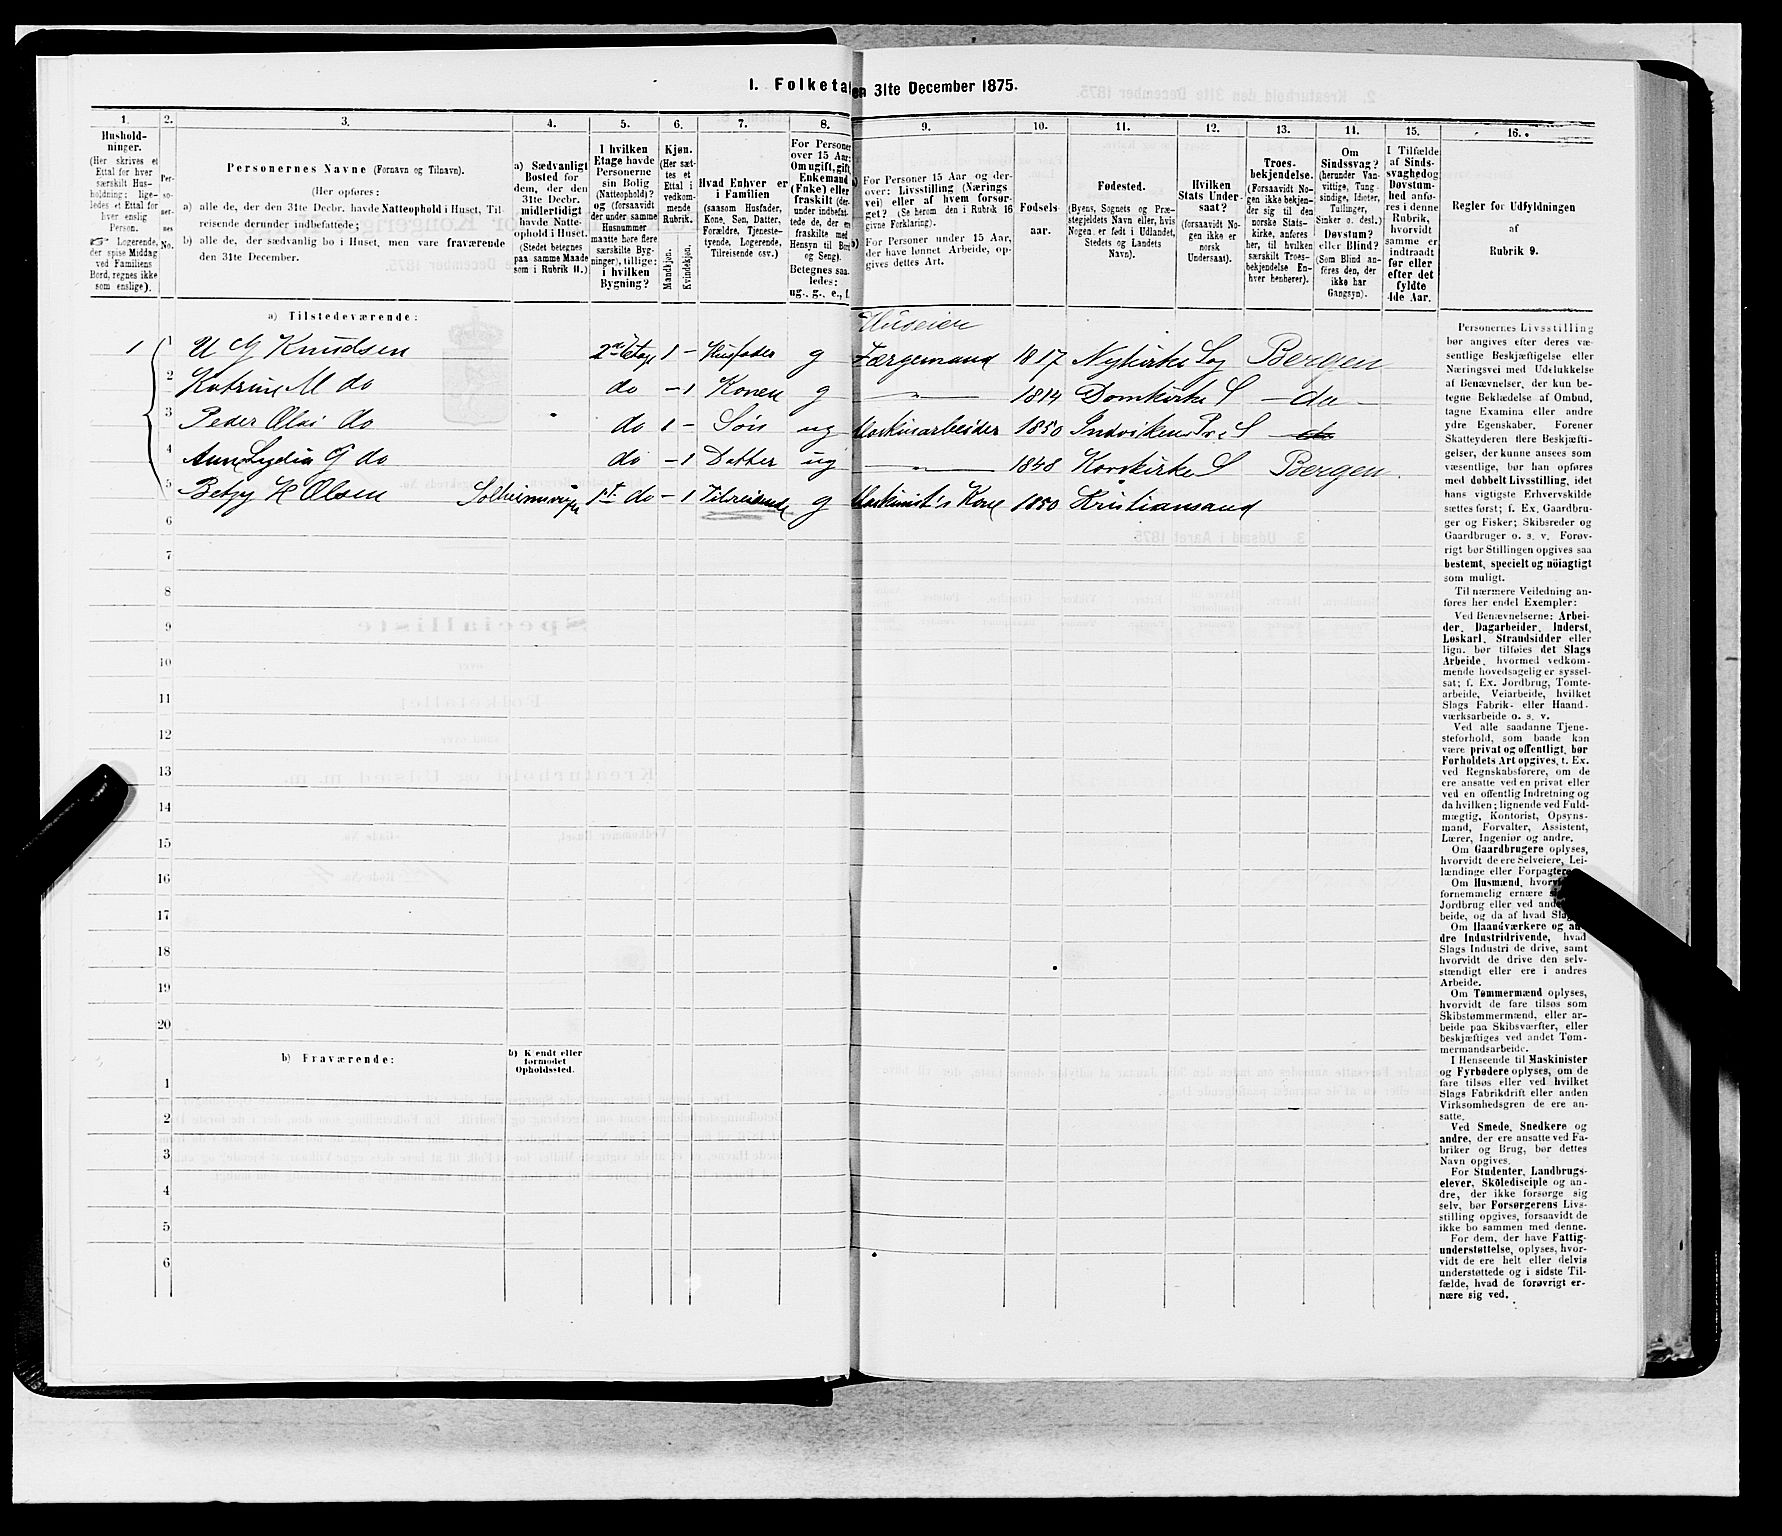 1. Folketal den 31te December 1875.
1. 2. 3. 4. 5. 6. 7. 8. 9. 10. 11. 12. 13. 14. 15. 16.
Hushold-
ninger.
(Her skrives et
Ettal for hver
særskilt Hus-
holdning; lige-
ledes et Ettal for
hver enslig
Person.
Logerende,
der spise Middag
ved Familiens
Bord, regnes ikke
som enslige).
Per-
so-
ner-
nes
No.
Personernes Navne (Fornavn og Tilnavn).
(Her opføres:
a) alle de, der den 31te Decbr. havde Natteophold i Huset, Til-
reisende derunder indbefattede;
b) alle de, der sædvanlig bo i Huset, men vare fraværende
den 31te December.
a) Sædvanligt
Bosted for
dem, der den
31te Decbr.
midlertidigt
havde Natte-
ophold i Huset.
(Stedet betegnes
paa samme Maade
som i Rubrik 11.)
I hvilken
Etage havde
Personerne
sin Bolig
(Natteophold)?
og (forsaavidt
der under samme
Husnummer
maatte høre flere
særskilte Byg-
ninger), tillige:
i hvilken
Bygning?
Kjøn.
(Her sæt-
tes et
Ettal i
vedkom-
mende
Rubrik.
Mandkjøn.
Kvindekjøn.
Hvad Enhver er
i Familien
(saasom Husfader,
Kone, Søn, Datter,
Forældre, Tjeneste-
tyende, Logerende,
Tilreisende osv.)
For Personer
over 15 Aar:
Om ugift, gift,
Enkemand
(Enke) eller
fraskilt (der-
under indbefat-
tede de, der ere
fraskilte med
Hensyn til Bord
og Seng).
Betegnes saa-
ledes:
ug., g., e., f.
a) For Personer 15 Aar og der-
over: Livsstilling (Nærings-
vei) eller af hvem forsør-
get? (Se herom den i Rubrik 16
givne Forklaring).
b) For Personer under 15 Aar,
der have lønnet Arbeide, op-
gives dettes Art.
Fødsels-
aar.
Fødested.
(Byens, Sognets og Præ-
stegjeldets Navn eller, hvis
Nogen er født i Udlandet,
Stedets og Landets
Navn).
Hvilken
Stats Under-
saat?
(forsaavidt No-
gen ikke er
norsk
Undersaat).
Troes-
bekjendelse.
(Forsaavidt No-
gen ikke bekjen-
der sig til den
norske Stats-
kirke, anføres
her, til hvilken
særskilt Troes-
bekjendelse En-
hver henhører).
Om
Sindssvag?
(herunder Van-
vittige, Tung-
sindige, Idioter,
Tullinger,
Sinker o. desl.)
Døvstum?
eller Blind?
(Som Blind an-
føres den, der
ikke har
Gangsyn).
I Tilfælde
af Sinds-
svaghed og
Døvstum-
hed anfø-
res i denne
Rubrik,
hvorvidt
samme er
indtraadt
før eller
efter det
fyldte
4de Aar.
Regler for Udfyldningen
af
Rubrik 9.
a) Tilstedeværende:
Huseier
1 1 U G Knudsen 2den Etage 1 - Husfader g Færgemand 1817 Nykirke Sog Bergen
2 Katrine M do do - 1 Konen g — " — 1814 Domkirke S — do —
3 Peder Olai do do 1 - Søn ug Maskinarbeider 1850 Indvikens Pr. S do
4 Anne Lydia G do do - 1 Datter ug — " — 1848 Korskirke S Bergen
5 Betzy H Olsen Solheimsvigen 1st do - 1 Tilreisende g Maskinist's Kone 1850 Kristiansand
6
7
8
9
10
11
12
13
14
15
16
17
18
19
20
b) Fraværende:
b) Kjendt eller
formodet
Opholdssted.
1
2
3
4
5
6
Personernes Livsstilling
bør angives efter deres væ-
sentlige Beskjæftigelse eller
Næringsvei med Udelukkelse
af Benævnelser, der kun be-
tegne Beklædelse af Ombud,
tagne Examina eller andre
ydre Egenskaber. Forener
Skatteyderen flere Beskjæfti-
gelser, der kunne ansees som
væsentlige, bør han opføres
med dobbelt Livsstilling, idet
hans vigtigste Erhvervskilde
sættes først; f. Ex. Gaardbru-
ger og Fisker; Skibsreder og
Gaardbruger o. s. v. Forøv-
rigt bør Stillingen opgives saa
bestemt, specielt og nöiagtigt
som muligt.
Til nærmere Veiledning an-
føres her endel Exempler:
Ved Benævnelserne: Arbei-
der, Dagarbeider, Inderst,
Løskarl, Strandsidder eller
lign. bør tilføies det Slags
Arbeide, hvormed vedkom-
mende hovedsagelig er syssel-
sat; f. Ex. Jordbrug, Tomte-
arbeide, Veiarbeide, hvilket
Slags Fabrik- eller Haand-
værksarbeide o. s. v.
Ved alle saadanne Tjene-
steforhold, som baade kan
være privat og offentligt, bør
Forholdets Art opgives, t. Ex.
ved Regnskabsførere, om de
ere ansatte ved en privat eller
ved en offentlig Indretning og
da hvilken; lignende ved Fuld-
mægtig, Kontorist, Opsyns-
mand, Forvalter, Assistent,
Lærer, Ingeniør og andre.
Om Gaardbrugere oplyses,
hvorvidt de ere Selveiere, Lei-
lændinge eller Forpagtere.
Om Husmænd,
fornemmelig ernære
Jordbrug eller ved
beide, og da af hvad
Om Haandværkere og an-
dre Industridrivende, hvad
Slags Industri de drive, samt
hvorvidt de drive den selv-
stændigt eller ere i andres
Arbeide.
Om Tømmermænd oplyses,
hvorvidt de fare tilsøs som
Skibstømmermænd, eller ar-
beide paa Skibsværfter, eller
beskjæftiges ved andet Tøm-
mermandsarbeide.
I Henseende til Maskinister
og Fyrbødere oplyses, om de
fare tilsøs eller ved hvilket
Slags Fabrikdrift eller anden
Virksomhedsgren de ere an-
satte.
Ved Smede, Snedkere og
andre, der ere ansatte ved Fa-
briker og Brug, bør dettes
Navn opgives.
For Studenter, Landbrugs-
elever, Skoledisciple og an-
dre, der ikke forsørge sig
selv, bør Forsørgerens Livs-
stilling opgives, forsaavidt de
ikke bo sammen med denne.
For dem, der have Fattig-
understøttelse, oplyses, hvor-
vidt de ere helt eller delvis
understøttede og i sidste Til-
fælde, hvad de forøvrigt er-
nære sig ved.